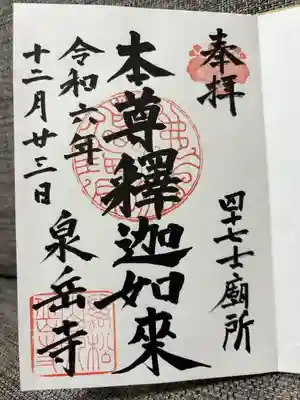 奉拝
四十七士廟所
本尊釋迦如来
令和六年
十二月廿三日
泉岳寺